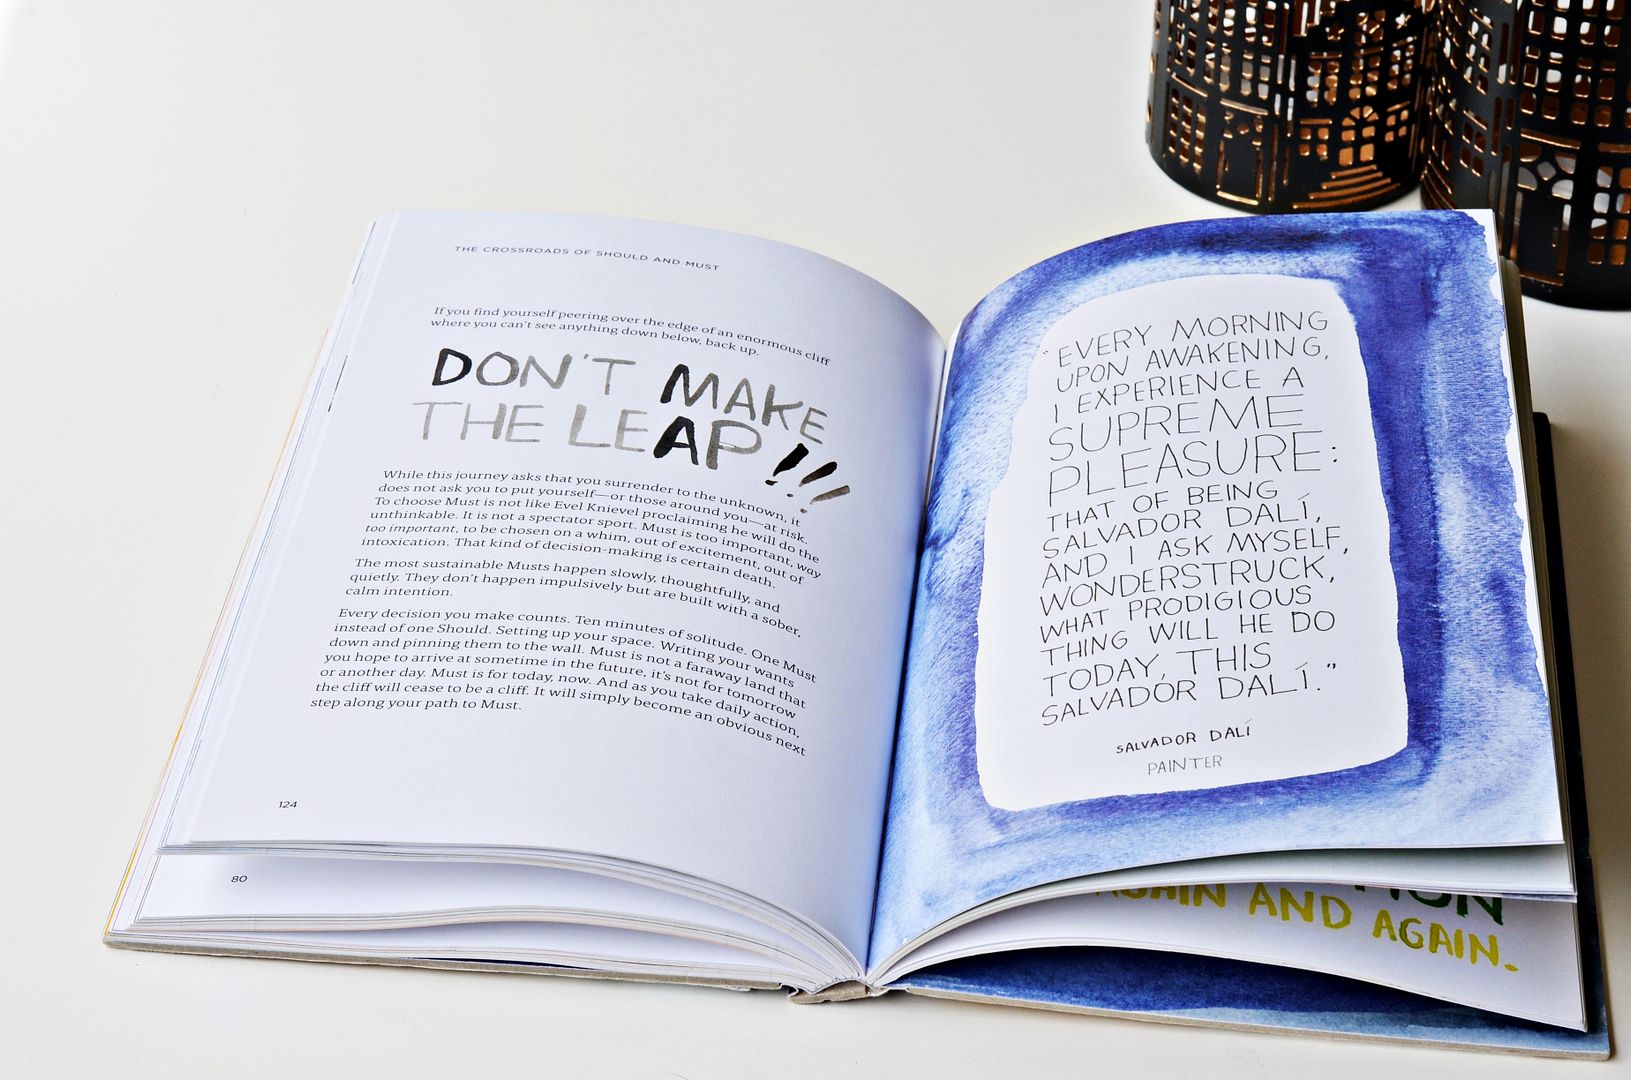 THE CROSSROADS OF SHOULD AND MUST
If you find yourself peering over the edge of an enormous cliff
where you can't see anything down below, back up.
DON'T MAKE
THE LEAP!!!
While this journey asks that you surrender to the unknown, it
does not ask you to put yourself—or those around you—at risk.
To choose Must is not like Evel Knievel proclaiming he will do the
unthinkable. It is not a spectator sport. Must is too important, way
too important, to be chosen on a whim, out of excitement, out of
intoxication. That kind of decision-making is certain death.
The most sustainable Musts happen slowly, thoughtfully, and
quietly. They don't happen impulsively but are built with a sober,
calm intention.
Every decision you make counts. Ten minutes of solitude. One Must
instead of one Should. Setting up your space. Writing your wants
down and pinning them to the wall. Must is not a faraway land that
you hope to arrive at sometime in the future, it's not for tomorrow
or another day. Must is for today, now. And as you take daily action,
the cliff will cease to be a cliff. It will simply become an obvious next
step along your path to Must.
124
80
"EVERY MORNING
UPON AWAKENING,
I EXPERIENCE A
SUPREME
PLEASURE:
THAT OF BEING
SALVADOR DALÍ,
AND I ASK MYSELF,
WONDERSTRUCK,
WHAT PRODIGIOUS
THING WILL HE DO
TODAY, THIS
SALVADOR DALÍ."
SALVADOR DALÍ
PAINTER
AGAIN AND AGAIN.